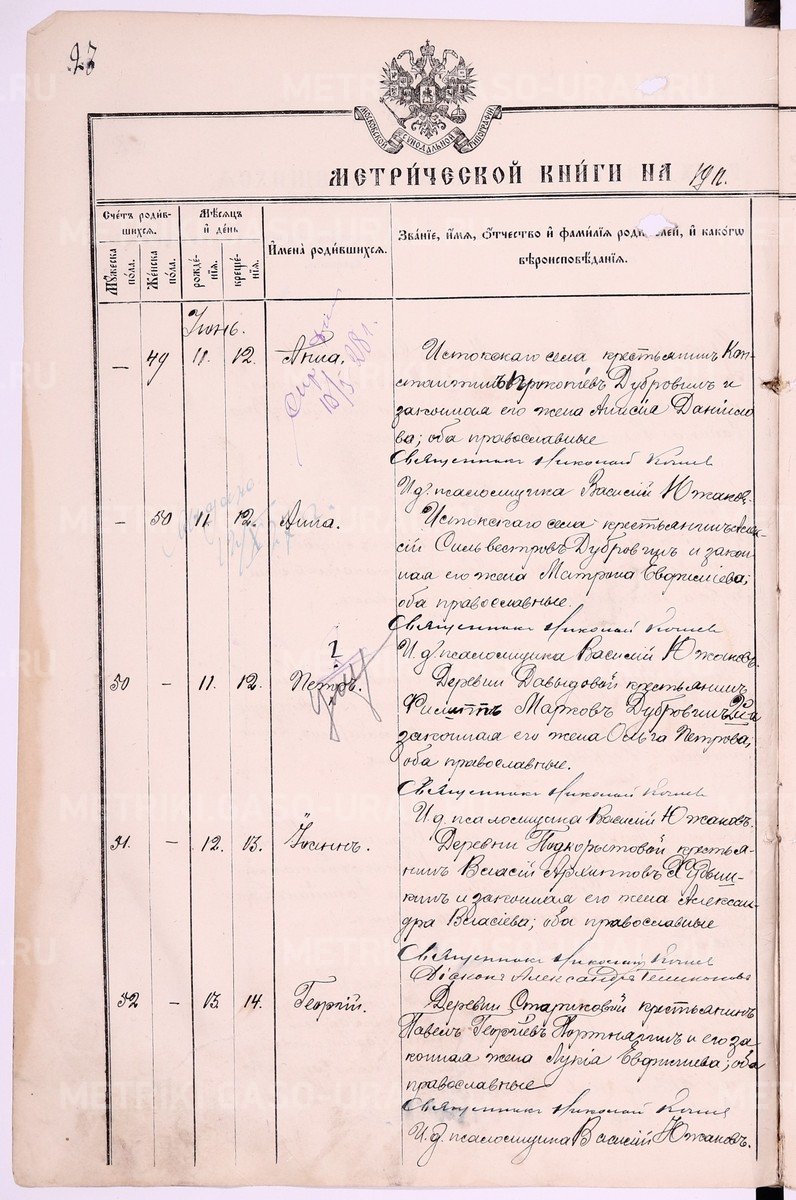 27
МОСКОВСКОЙ СѴНОДАЛЬНОЙ ТИПОГРАФІИ
МЕТРИ́ЧЕСКОЙ КНИ́ГИ НА 1912.
Сче́тъ роди́в-
шихся.
Мѣ́сяцъ
и҆ де́нь
Му́жеска
по́ла.
Же́нска
по́ла.
рожде́-
нїѧ.
креще́-
нїѧ.
И҆мена̀ роди́вшихся.
Зва́нїе, и҆́мѧ, ѻ҆́тчество и҆ фами́лїѧ роди́телей, и҆ како́гѡ
вѣроисповѣ́данїѧ.
Іюнь.
— 49 11. 12. Анна.
10/5 28 г.
Истокскаго села крестьянинъ Кон-
стантинъ Прокопіевъ Дубровинъ и
законная его жена Анисія Данило
ва; оба православные
Священникъ Николай
И.д. псаломщика Василій Южаковъ.
— 50 11. 12. Анна.
Истокскаго села крестьянинъ Алек-
сій Сильвестровъ Дубровинъ и закон-
ная его жена Матрона Евфиміева;
оба православные.
Священникъ Николай
И.д. псаломщика Василій Южаковъ.
50 — 11. 12. Петръ.
Деревни Давыдовой крестьянинъ
Филиппъ Марковъ Дубровинъ и
законная его жена Ольга Петрова;
оба православные.
Священникъ Николай
И.д. псаломщика Василій Южаковъ.
51. — 12. 13. Іоаннъ.
Деревни Поднорытовой крестья-
нинъ Власій Архипповъ
и законная его жена Алексан-
дра Власіева; оба православные
Священникъ Николай
Діаконъ Александръ
52 — 13. 14. Георгій.
Деревни Стариковой крестьянинъ
Павелъ Георгіевъ Портнягинъ и его за
конная жена Лукія Евфиміева; оба
православные
Священникъ Николай
И.д. псаломщика Василій Южаковъ.